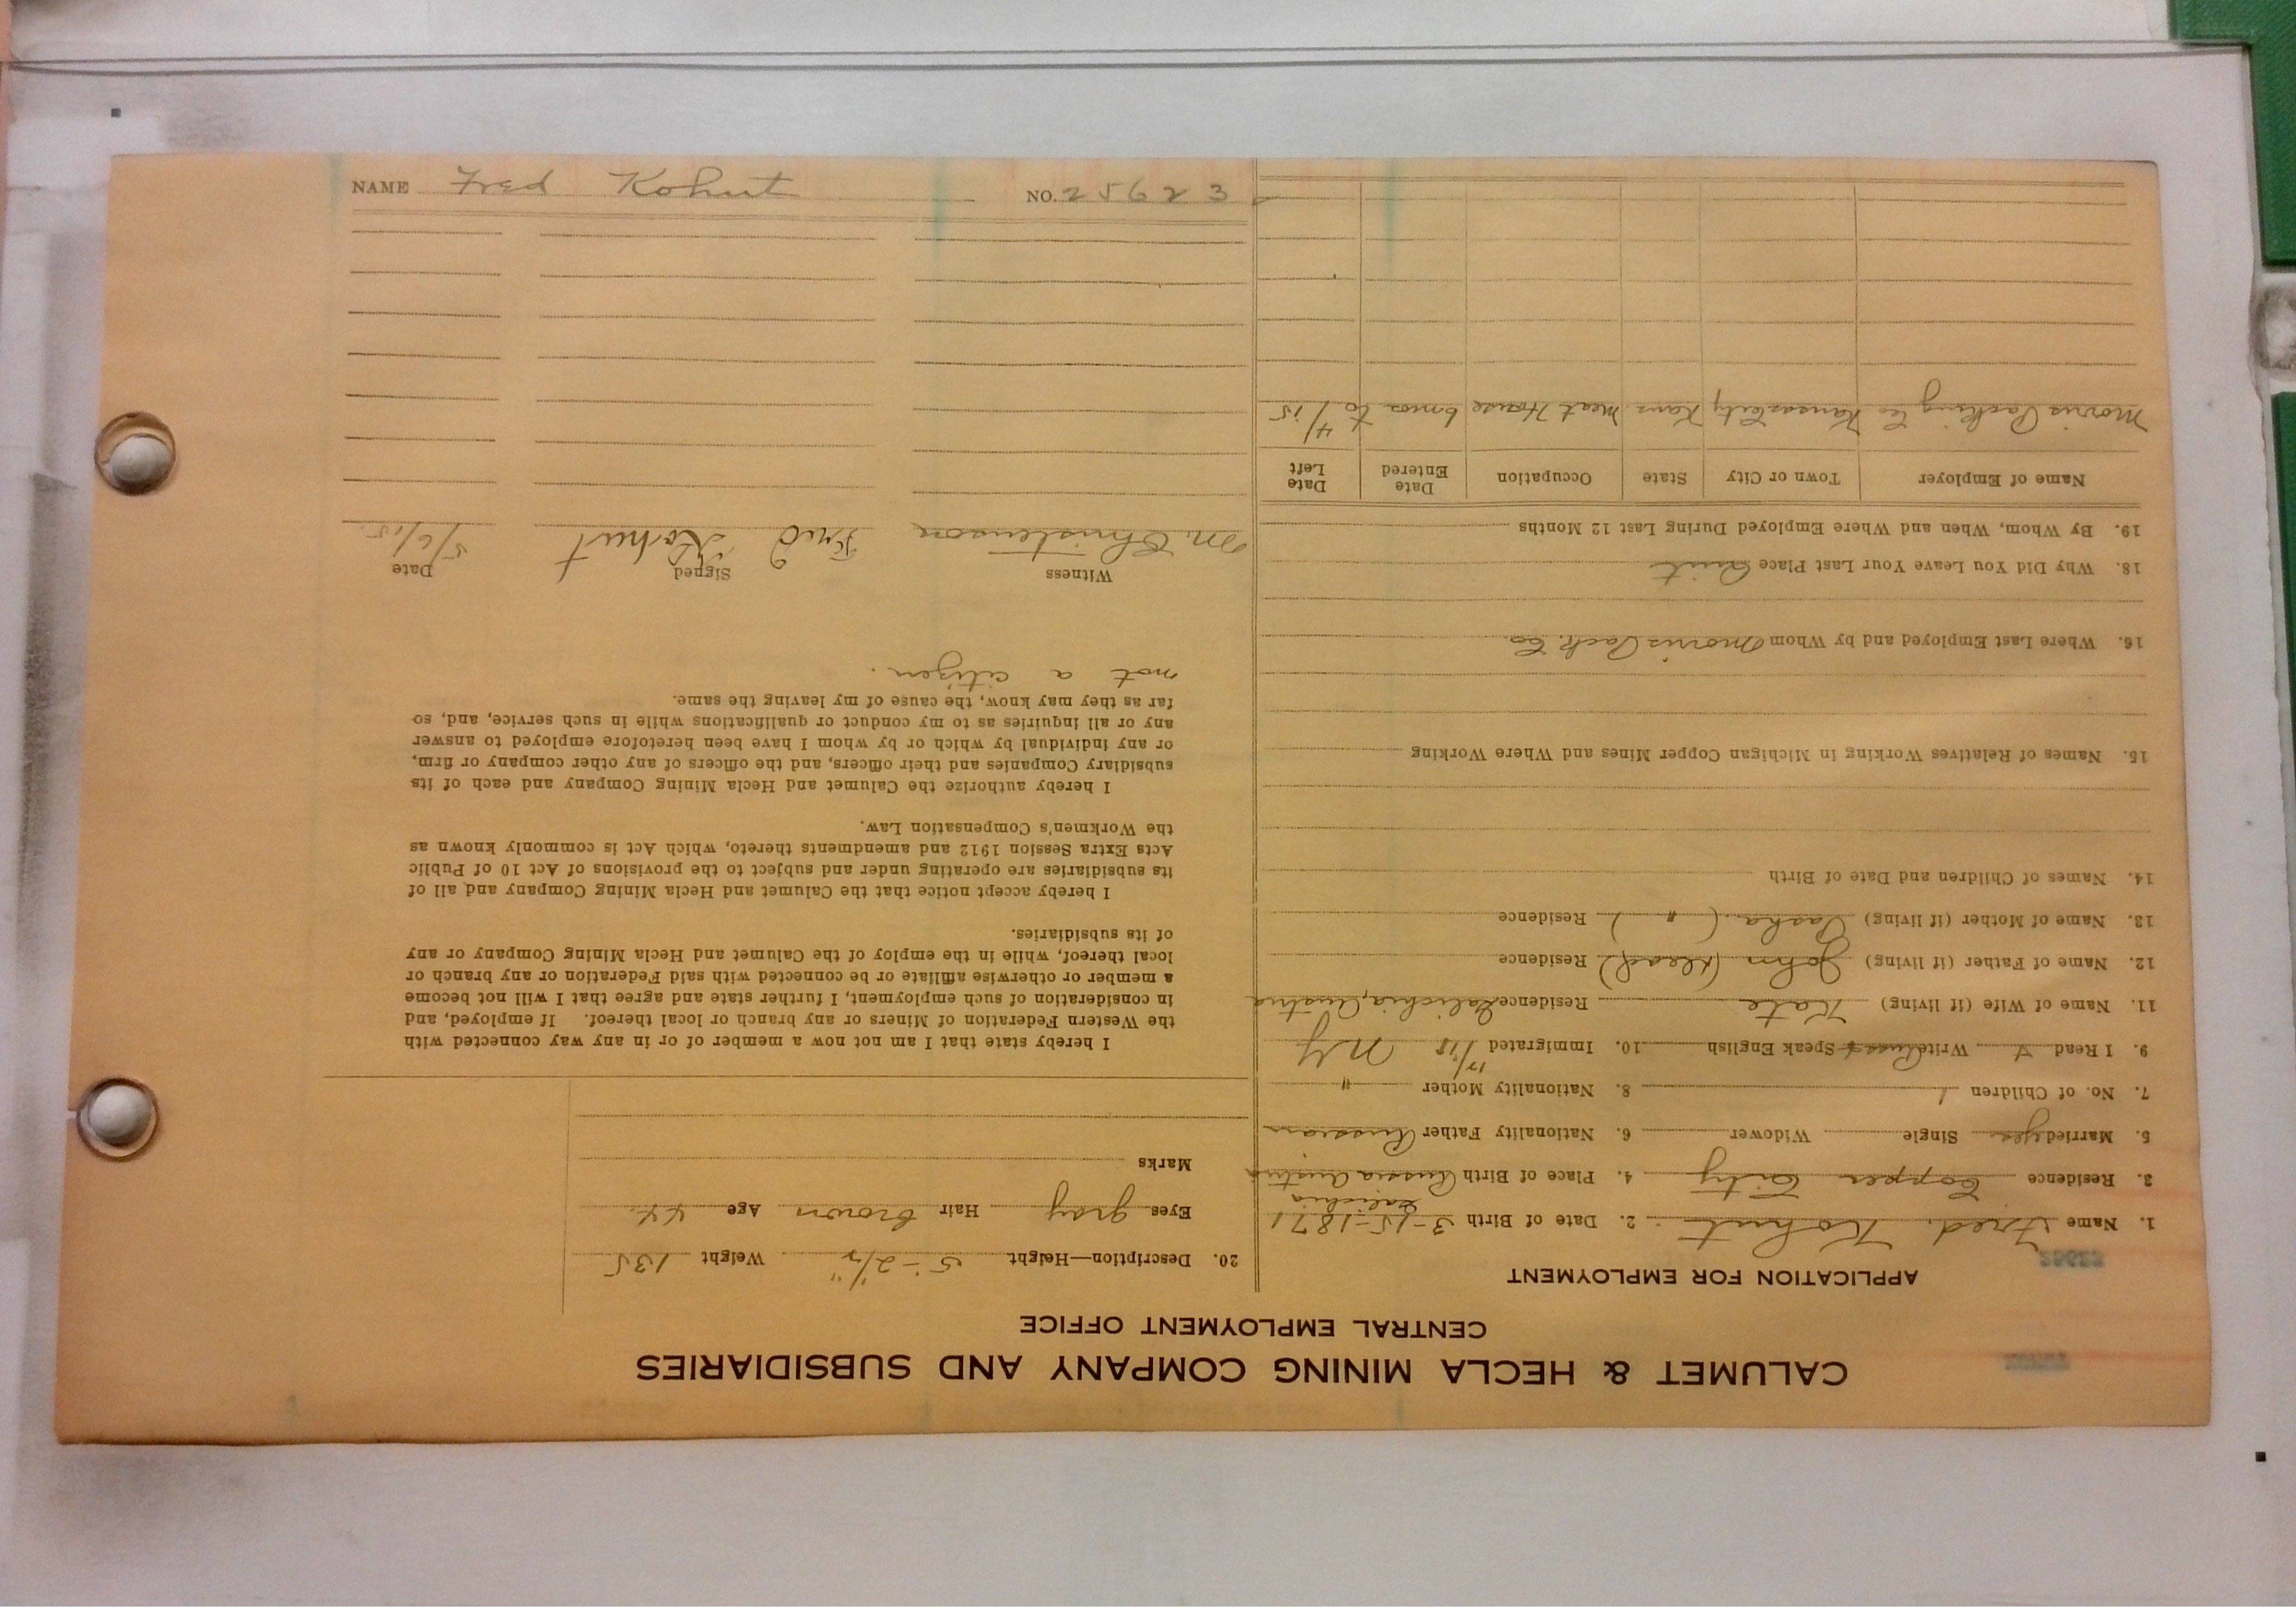 NAME Fred Kohut NO. 25623
CALUMET & HECLA MINING COMPANY AND SUBSIDIARIES
CENTRAL EMPLOYMENT OFFICE
APPLICATION FOR EMPLOYMENT
1. Name Fred. Kohut 2. Date of Birth 3-15-1871
Galichia
3. Residence Copper City 4. Place of Birth Russia Austria
5. Married yes Single Widower 6. Nationality Father Russian
7. No. of Children 1 8. Nationality Mother "
9. I Read & Write Russ Speak English 10. Immigrated NY
11. Name of Wife (if living) Kate Residence Galichia, Austria
12. Name of Father (if living) John (dead) Residence
13. Name of Mother (if living) Pasha ( " ) Residence
14. Names of Children and Date of Birth
15. Names of Relatives Working in Michigan Copper Mines and Where Working
16. Where Last Employed and by Whom Morris Pack. Co.
18. Why Did You Leave Your Last Place Quit
19. By Whom, When and Where Employed During Last 12 Months
Name of Employer Town or City State Occupation Date Entered Date Left
Morris Packing Co Kansas City Kans Meat House 6 mos to 4/15
20. Description—Height 5-2 1/2" Weight 135
Eyes gray Hair brown Age 44
Marks
I hereby state that I am not now a member of or in any way connected with
the Western Federation of Miners or any branch or local thereof. If employed, and
in consideration of such employment, I further state and agree that I will not become
a member or otherwise affiliate or be connected with said Federation or any branch or
local thereof, while in the employ of the Calumet and Hecla Mining Company or any
of its subsidiaries.
I hereby accept notice that the Calumet and Hecla Mining Company and all of
its subsidiaries are operating under and subject to the provisions of Act 10 of Public
Acts Extra Session 1912 and amendments thereto, which Act is commonly known as
the Workmen's Compensation Law.
I hereby authorize the Calumet and Hecla Mining Company and each of its
subsidiary Companies and their officers, and the officers of any other company or firm,
or any individual by which or by whom I have been heretofore employed to answer
any or all inquiries as to my conduct or qualifications while in such service, and, so
far as they may know, the cause of my leaving the same.
not a citizen.
Witness Signed Date
M. Christenson Fred Kohut 5/6/15.